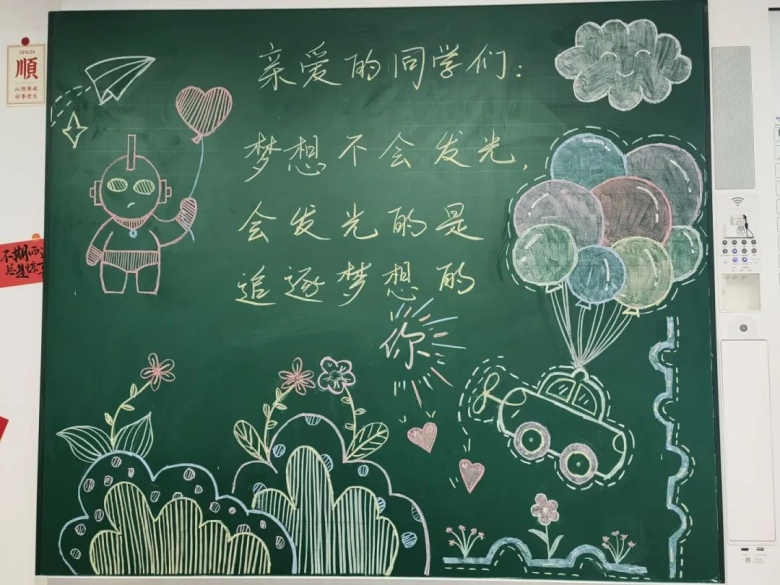 順
亲爱的同学们：
梦想不会发光，
会发光的是
追逐梦想的
你